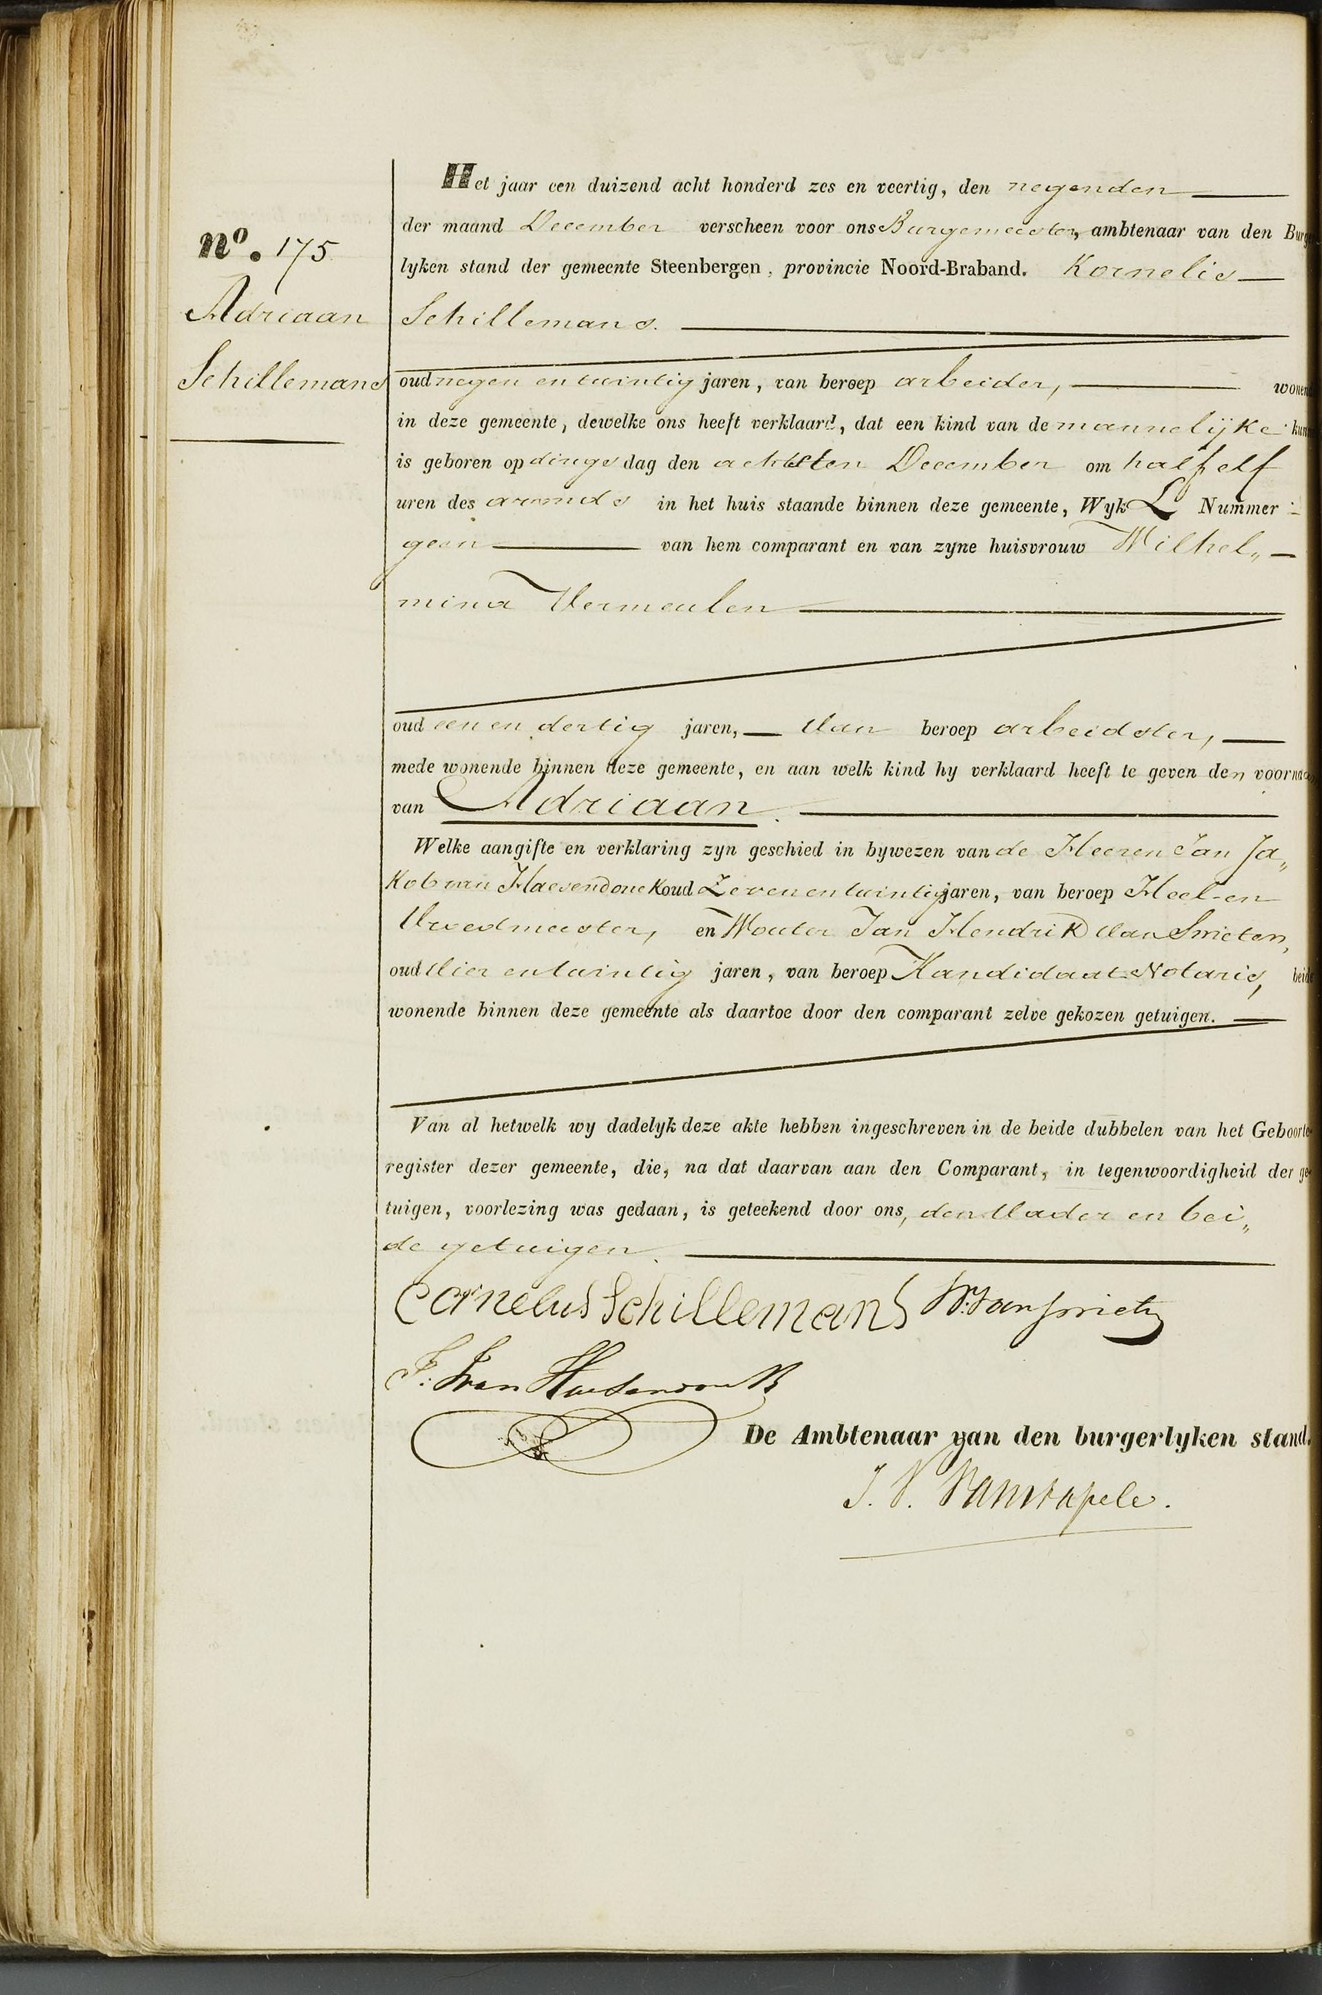 Het jaar een duizend acht honderd zes en veertig, den negenden
der maand December verscheen voor ons Burgemeester, ambtenaar van den Burge
lyken stand der gemeente Steenbergen, provincie Noord-Braband. Kornelis
Schillemans.
No. 175
Adriaan
Schillemans
oud negen en twintig jaren, van beroep arbeider, wonende
in deze gemeente, dewelke ons heeft verklaard, dat een kind van de mannelijke kunne
is geboren op dings dag den achtsten December om half elf
uren des avonds in het huis staande binnen deze gemeente, Wyk L Nummer
geen van hem comparant en van zyne huisvrouw Wilhel„
mina Vermeulen
oud een en dertig jaren, van beroep arbeidster,
mede wonende binnen deze gemeente, en aan welk kind hy verklaard heeft te geven den voornaam
van Adriaan.
Welke aangifte en verklaring zyn geschied in bywezen van de Heeren Jan Ja„
kob van Haesendonck oud Zeven en twintig jaren, van beroep Heel- en
Vroedmeester, en Wouter Jan Hendrik van Swieten,
oud vier en twintig jaren, van beroep Kandidaat Notaris, beide
wonende binnen deze gemeente als daartoe door den comparant zelve gekozen getuigen.
Van al hetwelk wy dadelyk deze akte hebben ingeschreven in de beide dubbelen van het Geboorte-
register dezer gemeente, die, na dat daarvan aan den Comparant, in tegenwoordigheid der ge-
tuigen, voorlezing was gedaan, is geteekend door ons, den Vader en bei„
de getuigen.
Cornelus Schillemans W: van Swieten
J: J van Haesendonck
De Ambtenaar van den burgerlyken stand.